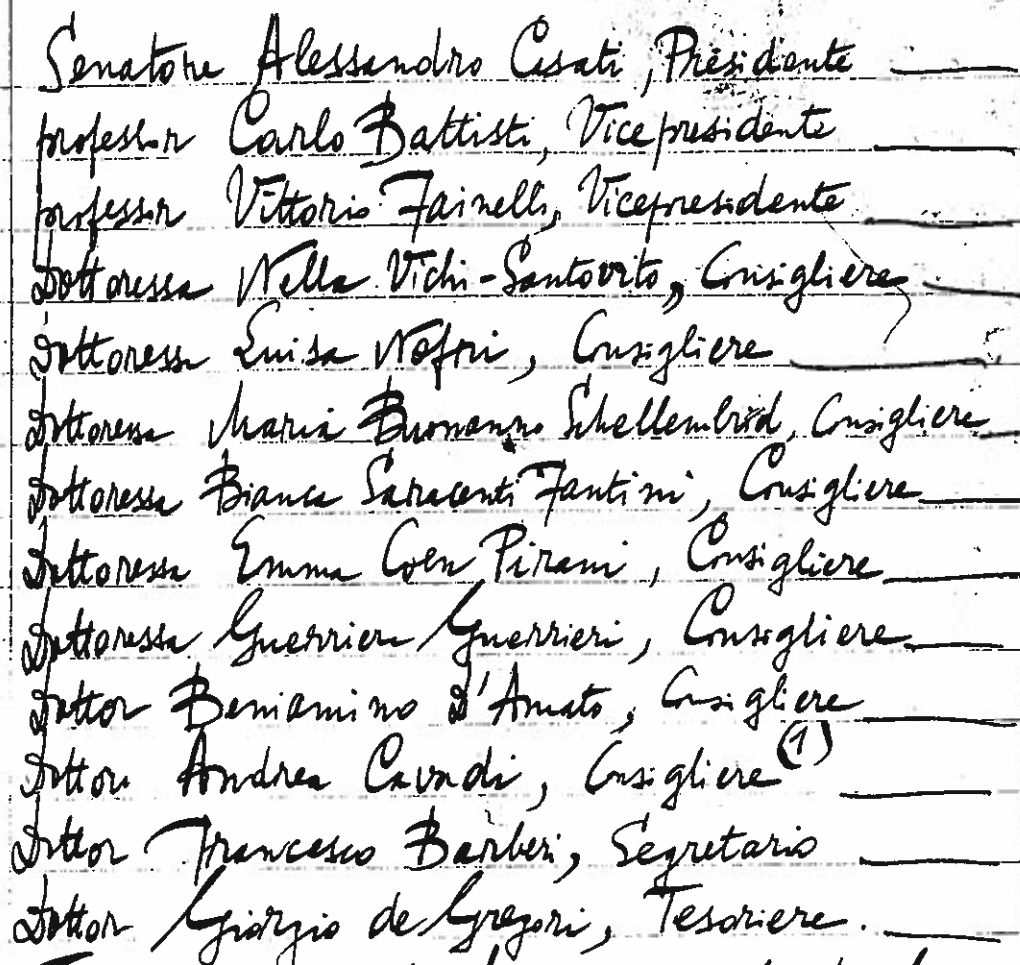 Senatore Alessandro Casati, Presidente
professor Carlo Battisti, Vicepresidente
professor Vittorio Fainelli, Vicepresidente
Dottoressa Nella Vichi-Santovito, Consigliere
Dottoressa Luisa Nofri, Consigliere
Dottoressa Maria Buonanno Schellembrid, Consigliere
Dottoressa Bianca Saraceni Fantini, Consigliere
Dottoressa Emma Coen Pirani, Consigliere
Dottoressa Guerriera Guerrieri, Consigliere
Dottor Beniamino D'Amato, Consigliere
Dottor Andrea Cavadi, Consigliere (1)
Dottor Francesco Barberi, Segretario
Dottor Giorgio de Gregori, Tesoriere.